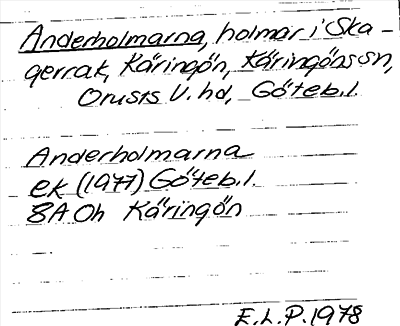 Anderholmarna, holmar i Ska-
gerrak, Käringön, Käringöns sn,
Orusts V. hd, Göteb. l.
Anderholmarna
ek (1977) Göteb. l.
8A Oh Käringön
E.L.P. 1978